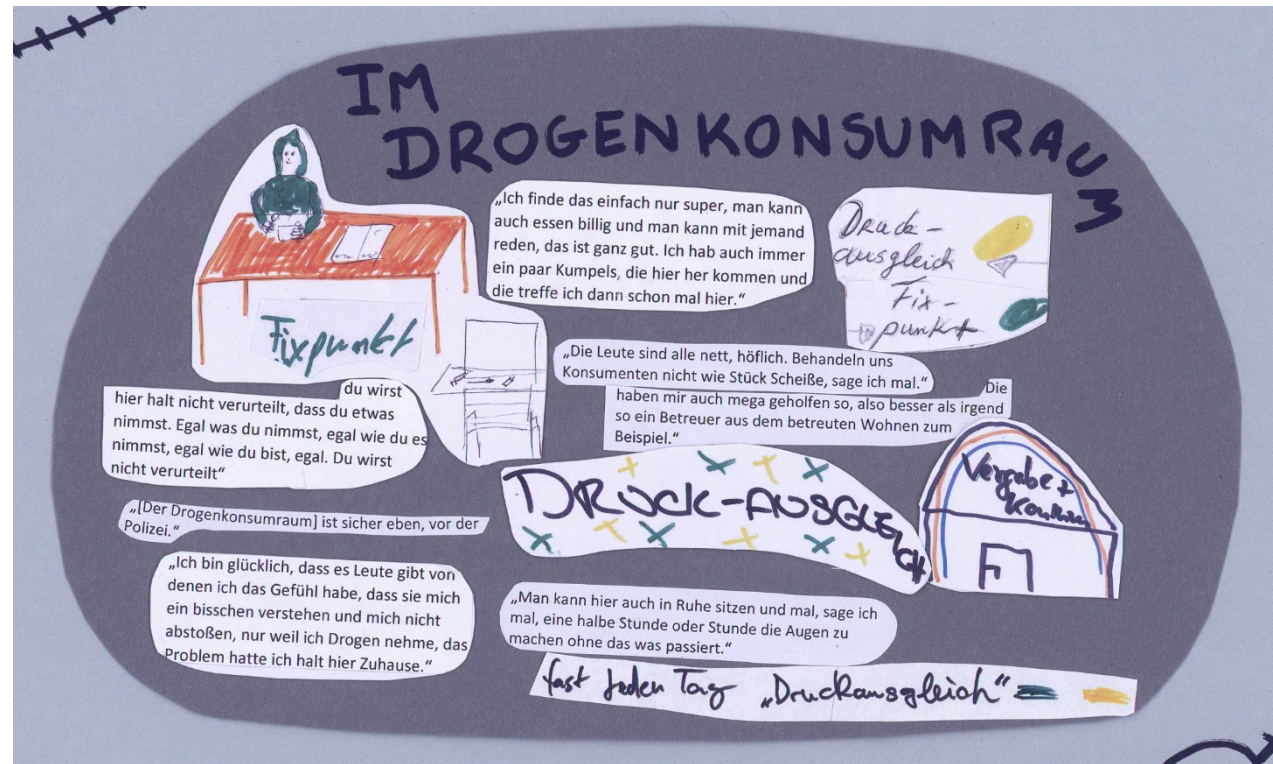 IM
DROGENKONSUMRAUM
„Ich finde das einfach nur super, man kann
auch essen billig und man kann mit jemand
reden, das ist ganz gut. Ich hab auch immer
ein paar Kumpels, die hier her kommen und
die treffe ich dann schon mal hier.“
Druck-
ausgleich
Fix-
punkt
Fixpunkt
„Die Leute sind alle nett, höflich. Behandeln uns
Konsumenten nicht wie Stück Scheiße, sage ich mal.“
Die
haben mir auch mega geholfen so, also besser als irgend
so ein Betreuer aus dem betreuten Wohnen zum
Beispiel.“
du wirst
hier halt nicht verurteilt, dass du etwas
nimmst. Egal was du nimmst, egal wie du es
nimmst, egal wie du bist, egal. Du wirst
nicht verurteilt“
DRUCK-AUSGLEICH
Vergabe +
„[Der Drogenkonsumraum] ist sicher eben, vor der
Polizei.“
„Ich bin glücklich, dass es Leute gibt von
denen ich das Gefühl habe, dass sie mich
ein bisschen verstehen und mich nicht
abstoßen, nur weil ich Drogen nehme, das
Problem hatte ich halt hier Zuhause.“
„Man kann hier auch in Ruhe sitzen und mal, sage ich
mal, eine halbe Stunde oder Stunde die Augen zu
machen ohne das was passiert.“
fast jeden Tag „Druckausgleich“